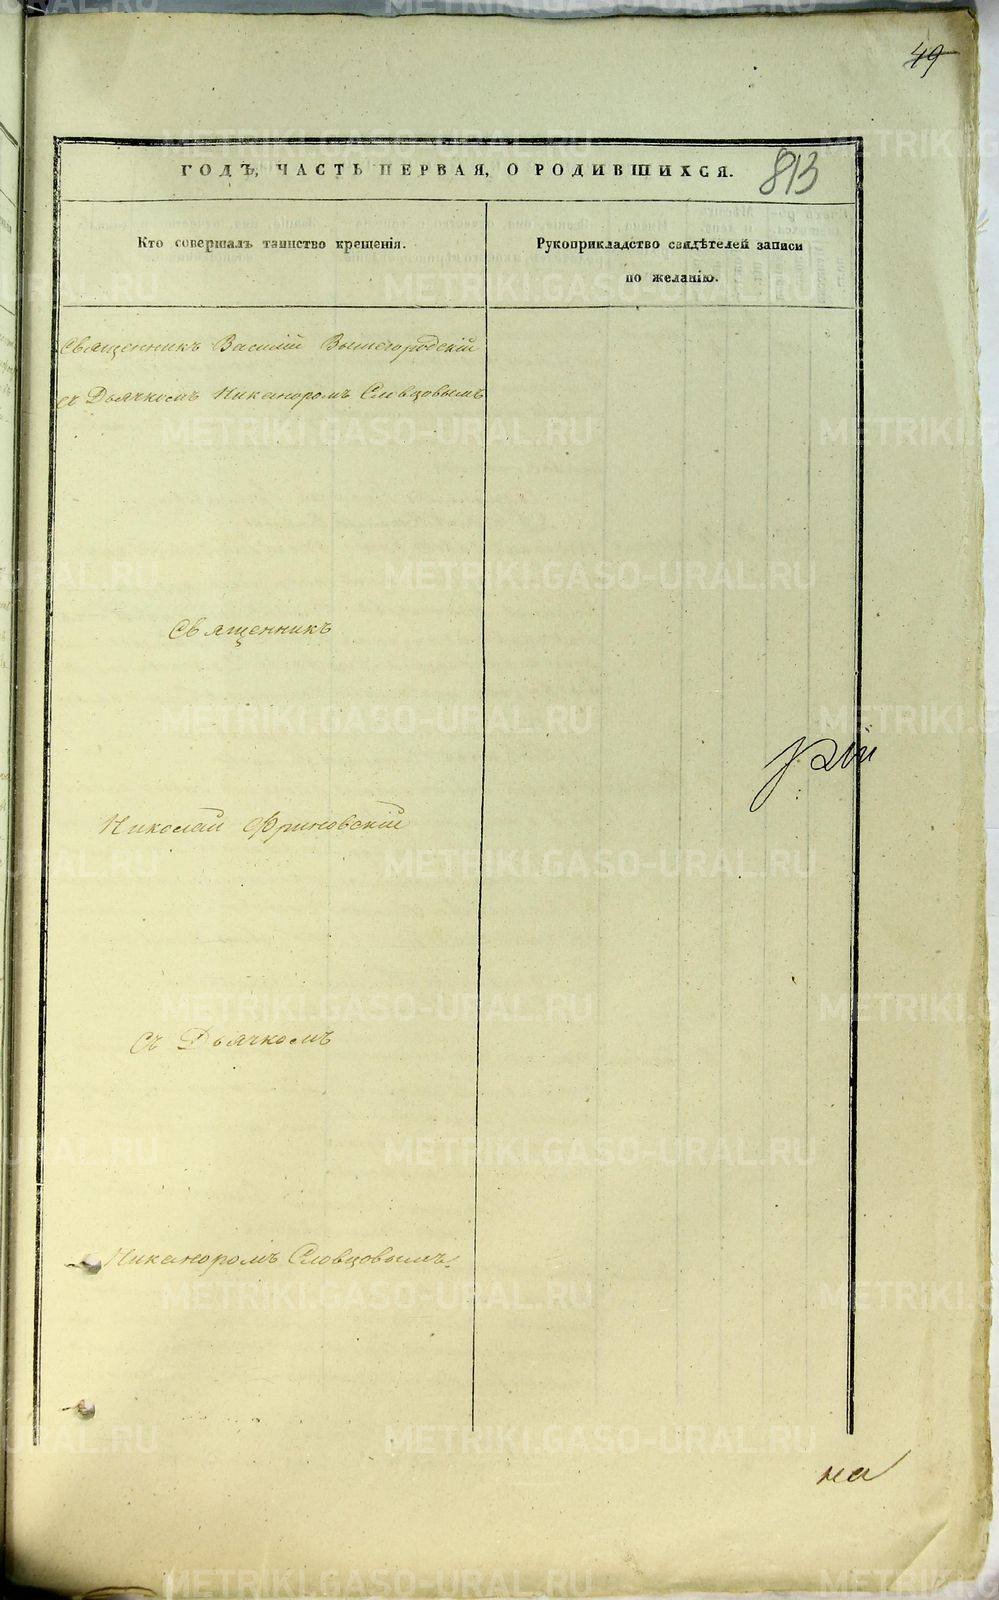 49
ГОДЪ, ЧАСТЬ ПЕРВАЯ, О РОДИВШИХСЯ.
813
Кто совершалъ таинство крещенія.
Рукоприкладство свидѣтелей записи
по желанію.
Священникъ Василій Вышегородскій
съ Дьячкомъ Никаноромъ Словцовымъ
Священникъ
Николай Фриновскій
Съ Дьячкомъ
Никаноромъ Словцовымъ.
на
METRIKI.GASO-URAL.RU